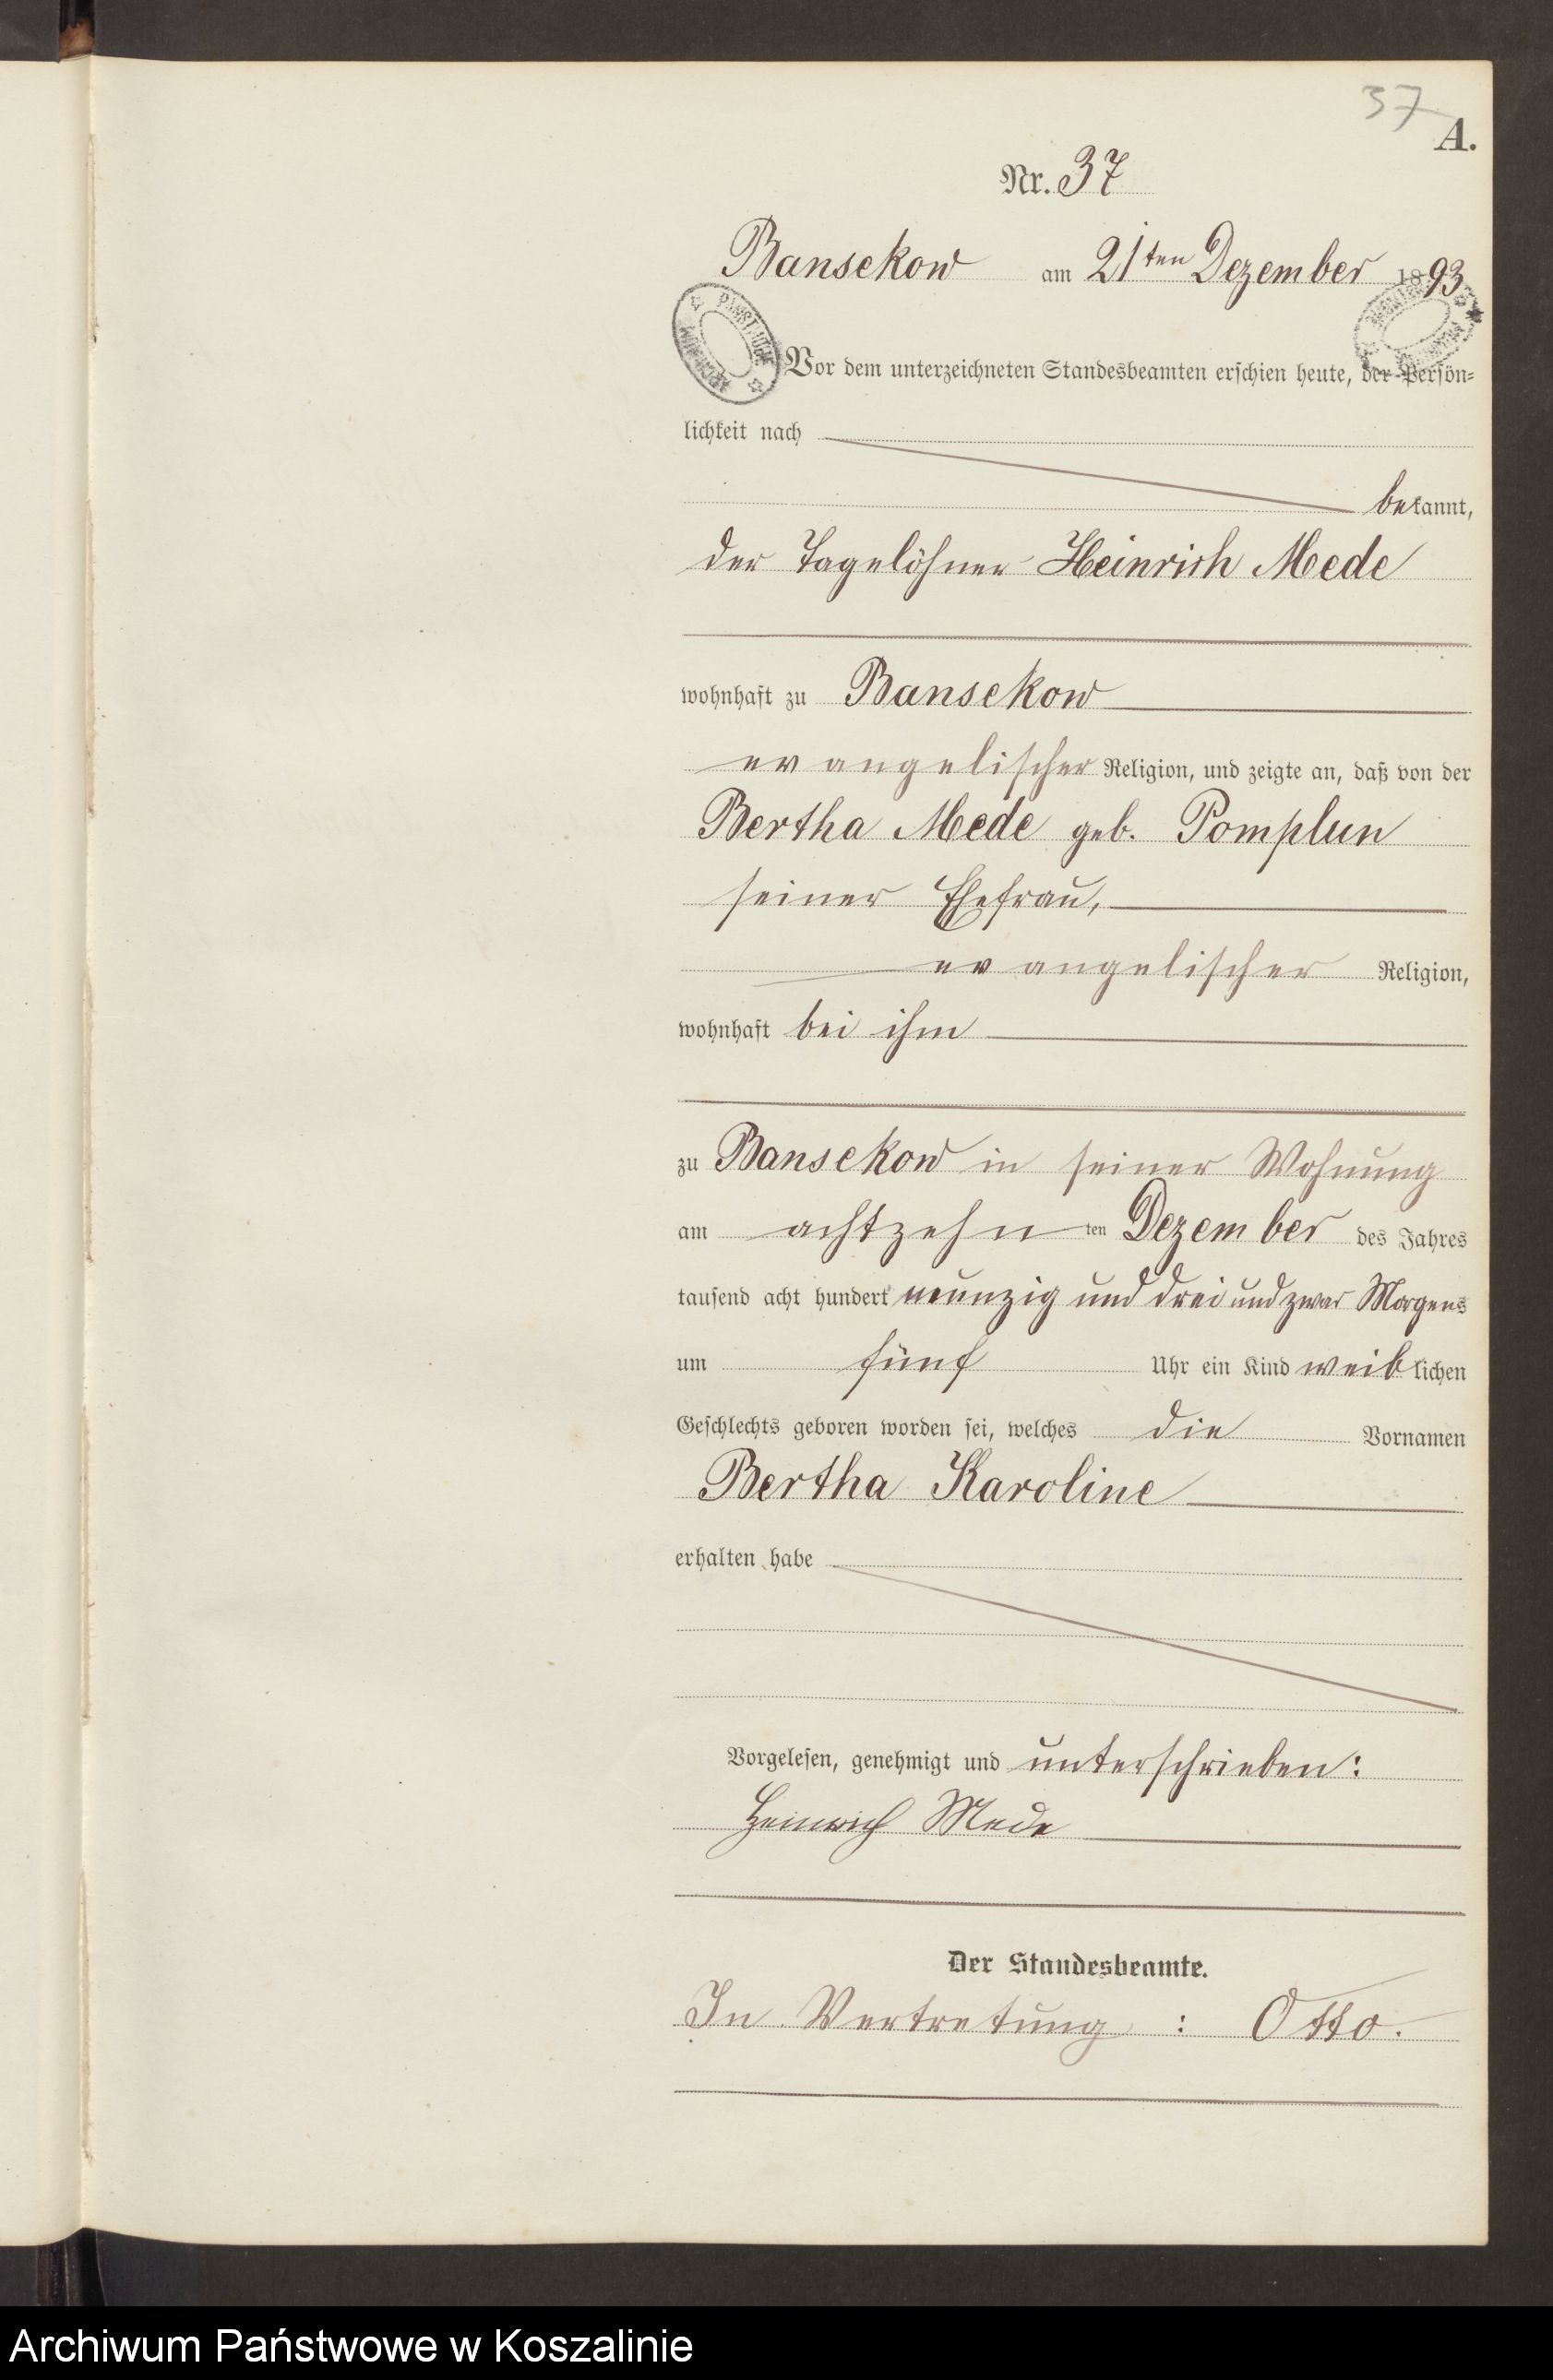 37
A.
Nr. 37
Bansekow am 21ten Dezember 1893
Vor dem unterzeichneten Standesbeamten erschien heute, der Persön-
lichkeit nach
bekannt,
der Tagelöhner Heinrich Mede
wohnhaft zu Bansekow
evangelischer Religion, und zeigte an, daß von der
Bertha Mede geb. Pomplun
seiner Ehefrau,
evangelischer Religion,
wohnhaft bei ihm
zu Bansekow in seiner Wohnung
am achtzehnten Dezember des Jahres
tausend acht hundert neunzig und drei und zwar Morgens
um fünf Uhr ein Kind weiblichen
Geschlechts geboren worden sei, welches die Vornamen
Bertha Karoline
erhalten habe
Vorgelesen, genehmigt und unterschrieben:
Heinrich Mede
Der Standesbeamte.
In Vertretung: Otto.
Archiwum Państwowe w Koszalinie